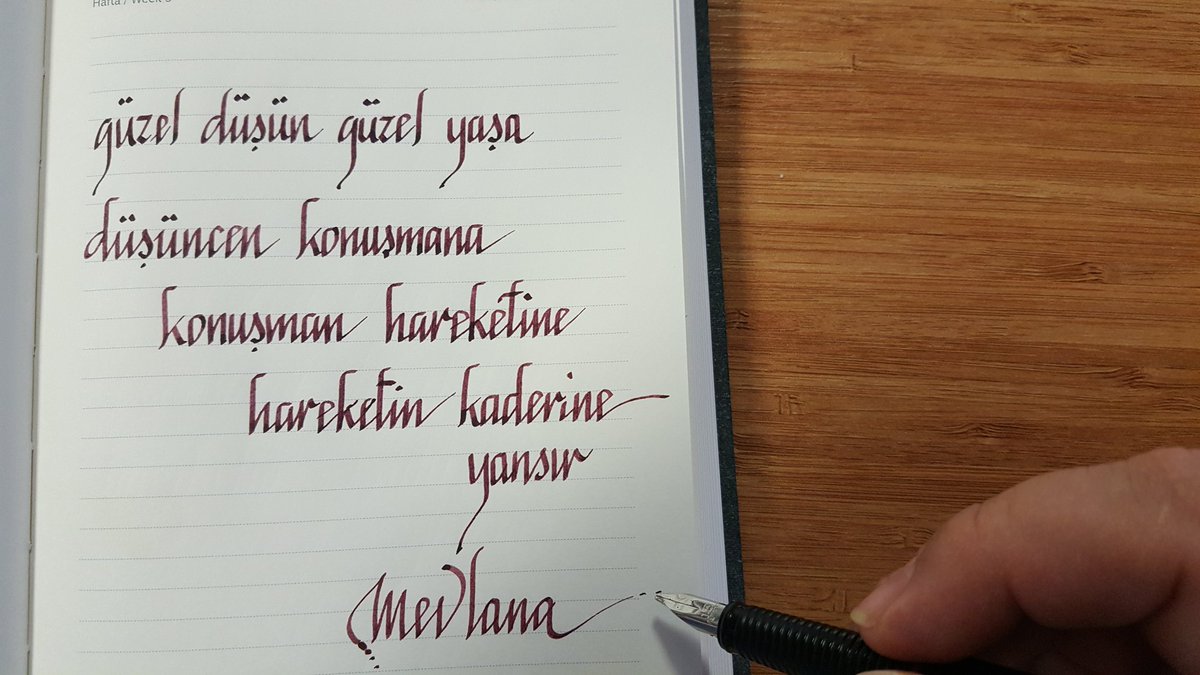 Hafta / Week
güzel düşün güzel yaşa
düşüncen konuşmana
konuşman hareketine
hareketin kaderine
yansır
Mevlana